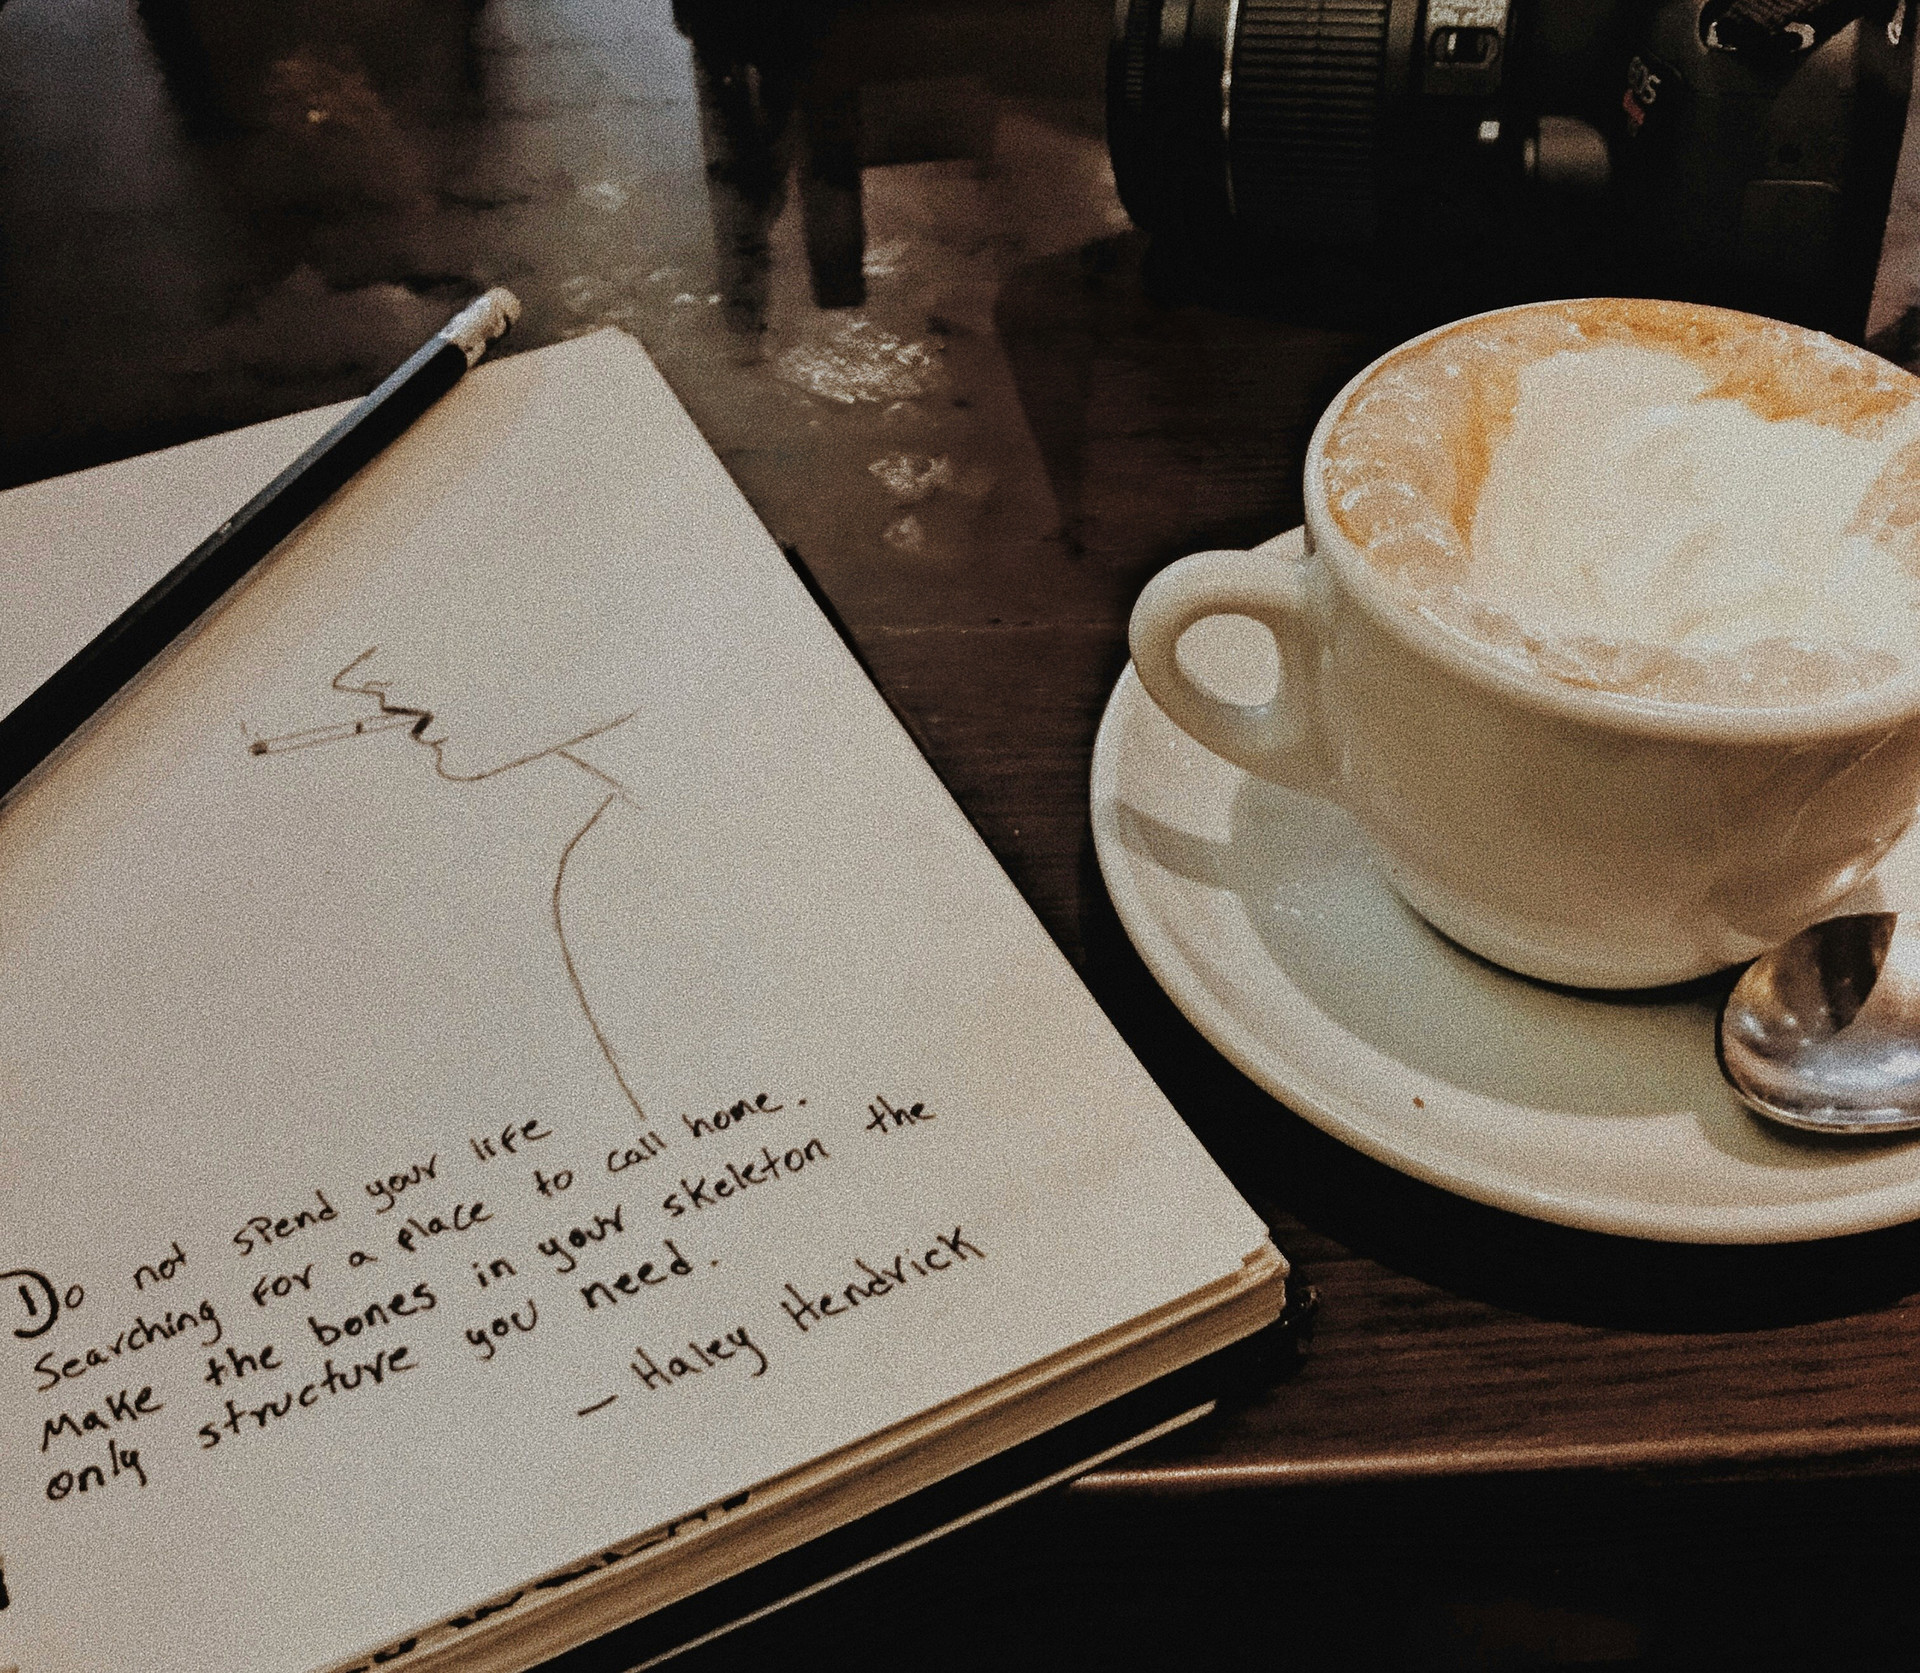 EOS
Do not spend your life
Searching for a place to call home.
Make the bones in your skeleton the
only structure you need.
— Haley Hendrick